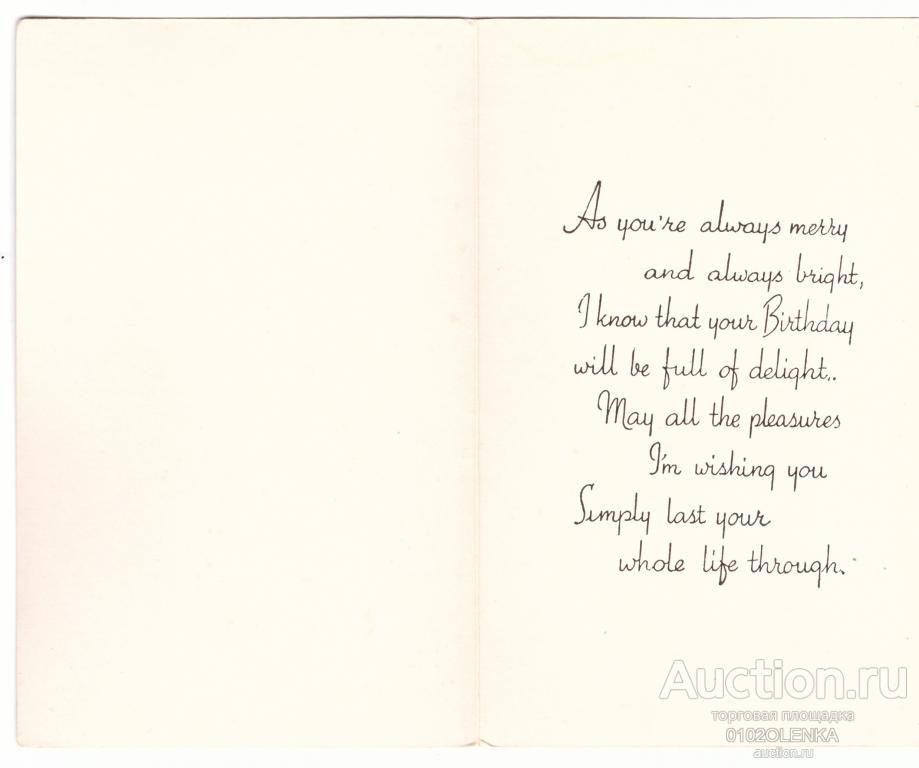 As you're always merry
and always bright,
I know that your Birthday
will be full of delight..
May all the pleasures
I'm wishing you
Simply last your
whole life through.
Auction.ru
торговая площадка
0102OLENKA
auction.ru